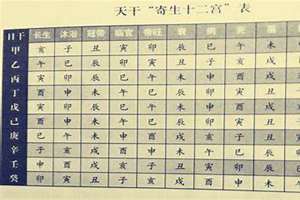 天干“寄生十二宫”表
日干 长生 沐浴 冠带 临官 帝旺 衰 病 死 墓
甲 亥 子 丑 寅 卯 辰 巳 午 未
乙 午 巳 辰 卯 寅 丑 子 亥 戌
丙 寅 卯 辰 巳 午 未 申 酉 戌
丁 酉 申 未 午 巳 辰 卯 寅 丑
戊 寅 卯 辰 巳 午 未 申 酉 戌
己 酉 申 未 午 巳 辰 卯 寅 丑
庚 巳 午 未 申 酉 戌 亥 子 丑
辛 子 亥 戌 酉 申 未 午 巳 辰
壬 申 酉 戌 亥 子 丑 寅 卯 辰
癸 卯 寅 丑 子 亥 戌 酉 申 未